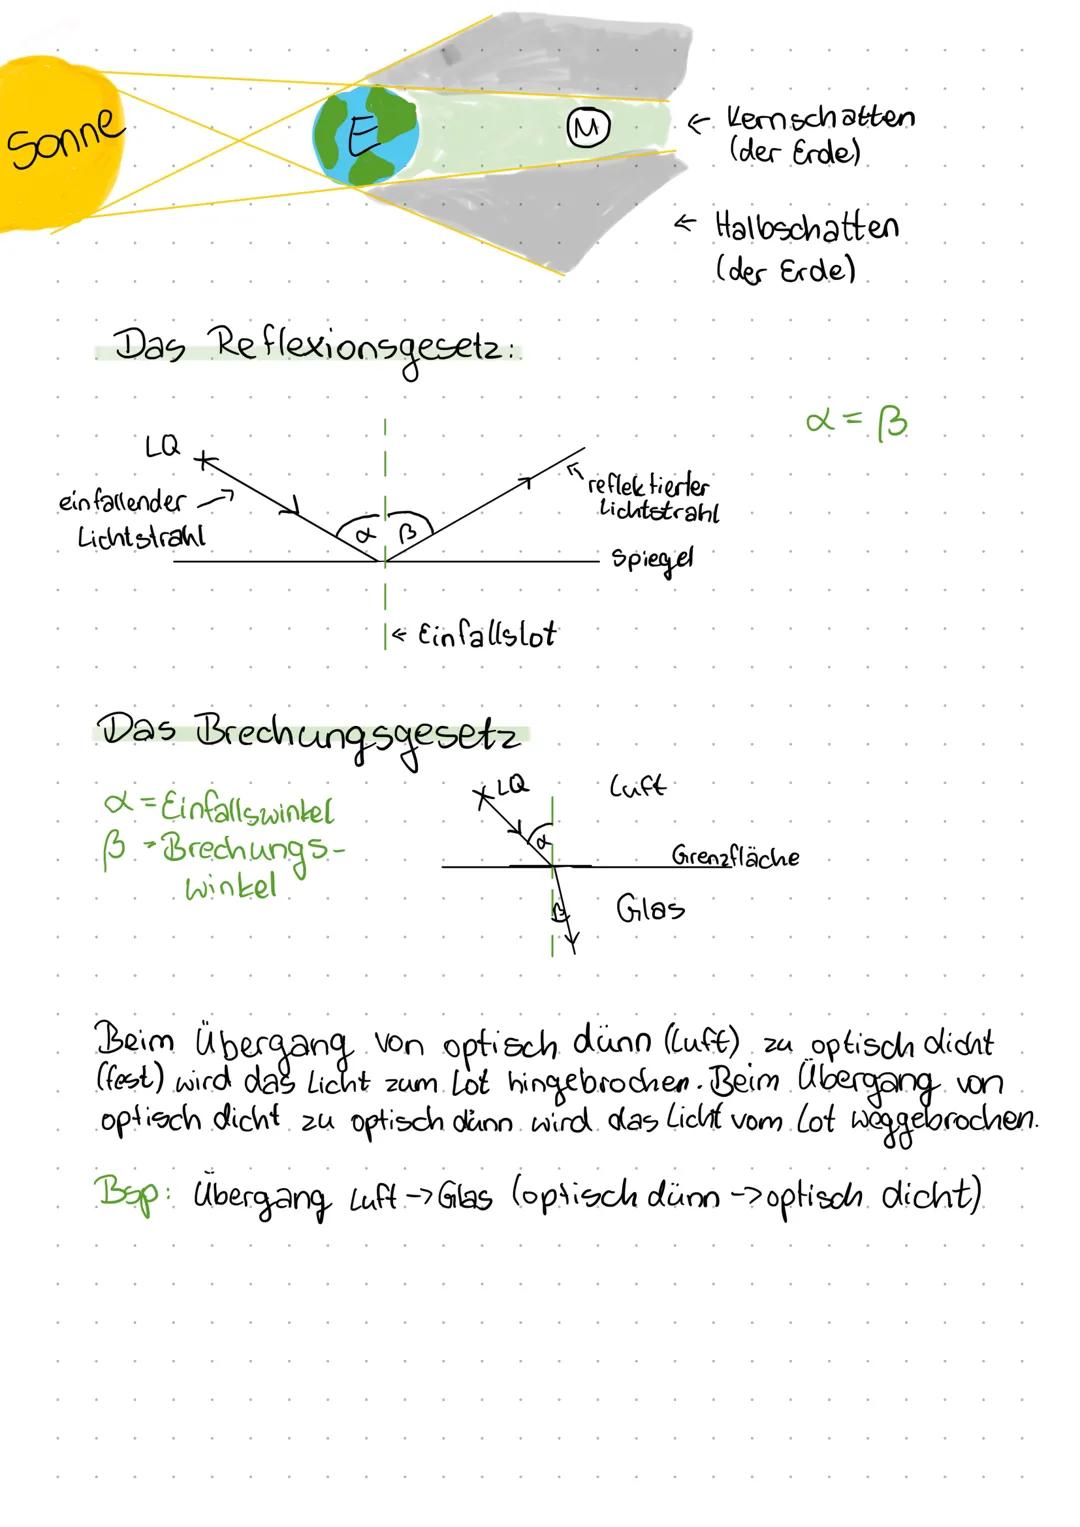 Sonne
E
M
← Kernschatten
(der Erde)
← Halbschatten
(der Erde)
Das Reflexionsgesetz:
α = β
LQ
einfallender →
Lichtstrahl
α β
reflektierter
Lichtstrahl
Spiegel
← Einfallslot
Das Brechungsgesetz
α = Einfallswinkel
β = Brechungs-
winkel
LQ
Luft
α
Grenzfläche
β
Glas
Beim Übergang von optisch dünn (Luft) zu optisch dicht
(fest) wird das Licht zum Lot hingebrochen. Beim Übergang von
optisch dicht zu optisch dünn wird das Licht vom Lot weggebrochen.
Bsp: Übergang Luft → Glas (optisch dünn → optisch dicht)